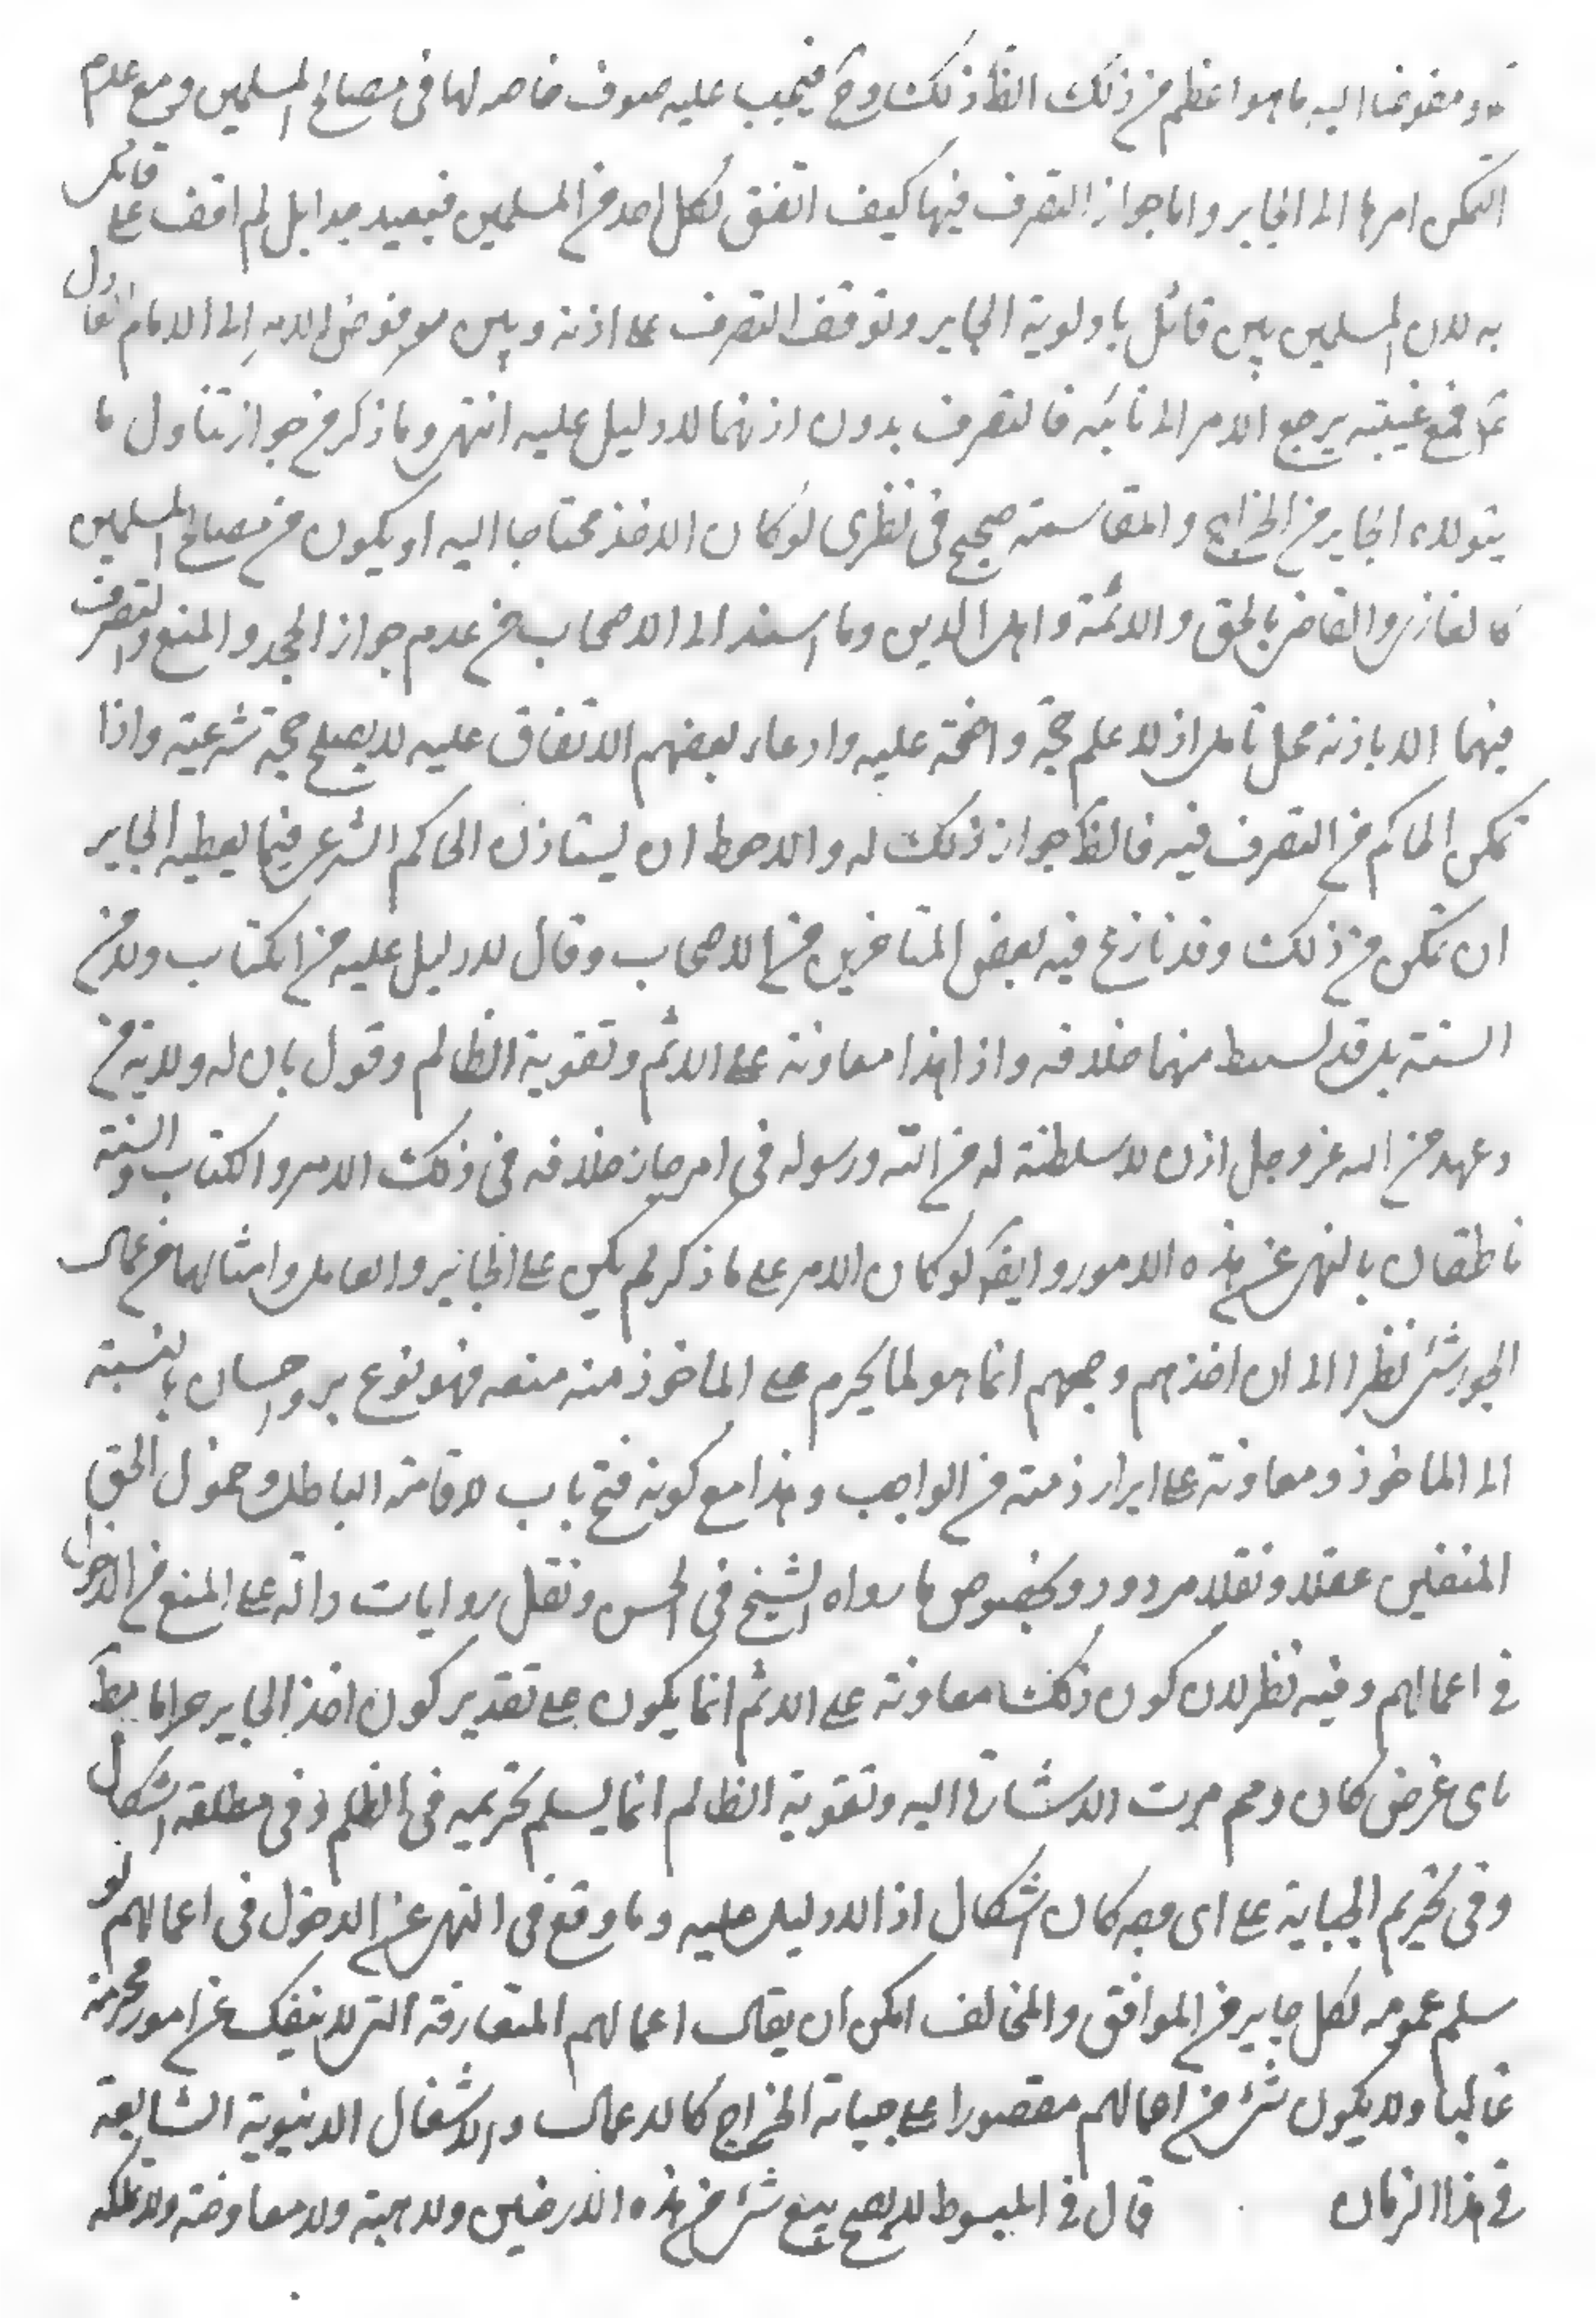 ته ومفوضا اليه ما هو اعظم من ذلك الظ ذلك وح فيجب عليه صرف حاصلها في مصالح المسلمين ومع عدم
التمكن امرها الى الجاير واما جواز التصرف فيها كيف اتفق لكل احد من المسلمين فبعيد جدا بل لم اقف على قائل
به لان المسلمين بين قائل باولوية الجاير وتوقف التصرف على اذنه وبين مفوض الامر الى الامام العادل
ع فمع غيبته يرجع الامر الى نائبه فالتصرف بدون اذنهما لا دليل عليه انتهى وما ذكر من جواز تناول ما
يتولاه الجاير من الخراج والمقاسمة صحيح في نظري لو كان الاخذ محتاجا اليه او يكون من مصالح المسلمين
كالغازي والقاضي بالحق والائمة واهل الدين وما اسند الى الاصحاب من عدم جواز الجحد والمنع والتصرف
فيهما الا باذنه محل تامل اذ لا علم حجة واضحة عليه وادعاء بعضهم الاتفاق عليه لا يصلح حجة شرعية واذا
تمكن الحاكم من التصرف فيه فالظ جواز ذلك له والاحوط ان يستاذن الحاكم الشرعي فيما يعطيه الجاير
ان تمكن من ذلك وقد نازع فيه بعض المتاخرين من الاصحاب وقال لا دليل عليه من الكتاب ولا من
السنة بل قد يستنبط منهما خلافه واذا هذا معاونة على الاثم وتقوية الظالم وقول بان له ولاية من
وعهد من الله عز وجل اذن لا سلطنة له من الله ورسوله في امر جاز خلافه في ذلك الامر والكتاب والسنة
ناطقان بالنهي عن هذه الامور وايض لو كان الامر على ما ذكر لم يكن على الجائر والعامل وامثالهما من عمال
الجور شئ نظرا الى ان اخذهم وجمعهم انما هو لما يحرم على الماخوذ منه منعه فهو نوع بر واحسان بالنسبة
الى الماخوذ ومعاونة على ابراء ذمته من الواجب وهذا مع كونه فتح باب لاقامة الباطل وخمول الحق
المنفيين عقلا ونقلا مردود وبخصوص ما رواه الشيخ في الحسن ونقل روايات دالة على المنع من الدخول
في اعمالهم وفيه نظر لان كون ذلك معاونة على الاثم انما يكون على تقدير كون اخذ الجاير حراما مط
باى غرض كان وقد مرت الاشارة اليه وتقوية الظالم انما يسلم تحريمه في الظلم وفي مطلقه اشكال
وفي تحريم الجباية على اى وجه كان اشكال اذ لا دليل عليه وما وقع في النهي عن الدخول في اعمالهم لو
سلم عمومه لكل جاير من الموافق والمخالف امكن ان يقال اعمالهم المتعارفة التى لا ينفك عن امور محرمة
غالبا ولا يكون شئ من اعمالهم مقصورا على جباية الخراج كالاعمال والاشغال الدنيوية الشايعة
في هذا الزمان قال في المبسوط لا يصح بيع شئ من هذه الارضين ولا هبته ولا معاوضته ولا تملكه